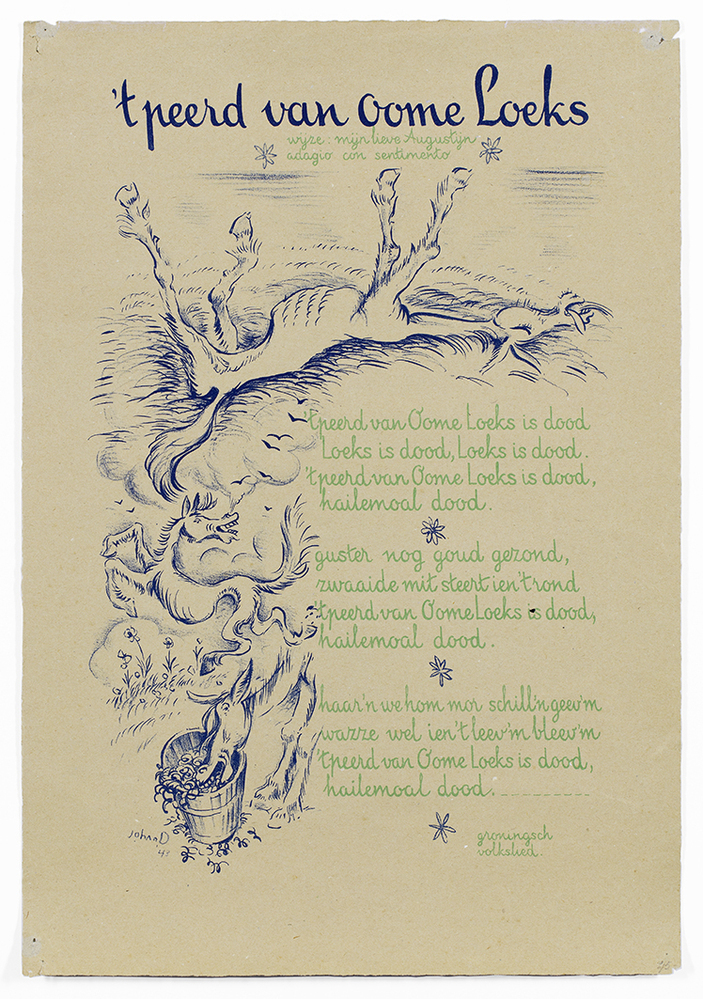 't peerd van Oome Loeks
wijze: mijn lieve Augustijn
adagio con sentimento
't peerd van Oome Loeks is dood
Loeks is dood, Loeks is dood.
't peerd van Oome Loeks is dood,
hailemoal dood.
guster nog goud gezond,
zwaaide mit steert ien't rond
't peerd van Oome Loeks is dood,
hailemoal dood.
haar'n we hom mor schill'n geev'm
wazze wel ien't leev'm bleev'm
't peerd van Oome Loeks is dood,
hailemoal dood.
groningsch
volkslied.
JohanD
43